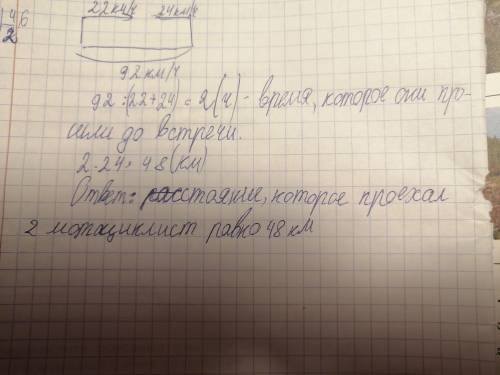 4 6
2
22км/ч 24км/ч
92км/ч
92:(22+24)=2(ч)- время, которое они про-
шли до встречи.
2·24=48(км)
Ответ: расстояние, которое проехал
2 мотоциклист равно 48 км